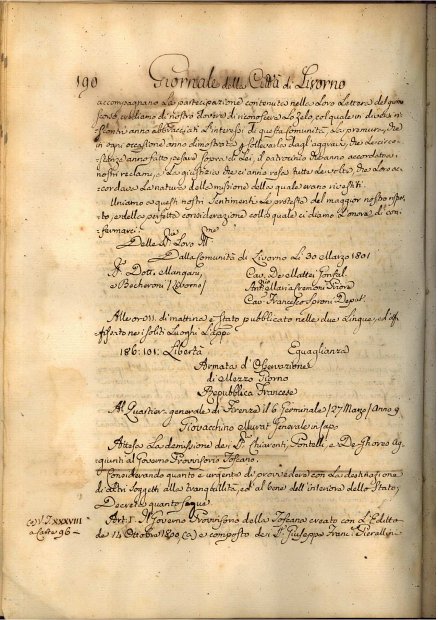 190 Giornale della Città di Livorno
accompagnano la partecipazione contenuta nella loro Lettera del giorno
scorso, crediamo di nostro dovere di riconoscere lo zelo, col quale in diversi
anno abbracciati l'interessi di questa Comunità, la premura, che
in ogni occasione anno dimostrata di sollevarla dagl'aggravi, che le circo
stanze anno fatto pesare sopra di Lei, il patrocinio che anno accordato a
nostri reclami, e la giustizia che ci anno resa tutte le volte, che loro ac
cordava la natura della missione della quale erano rivestiti.
Uniamo a questi nostri sentimenti le proteste del maggior nostro rispet
to, e della perfetta considerazione colla quale ci diamo l'onore di con
fermarci.
Delle Loro
Dalla Comunità di Livorno li 30 Marzo 1801
Dott. Mangani, Cav. De Mattei Gonfal.
e Becheroni / Livorno / Ant. Maria Priore
Cav. Francesco Sproni Deput.
Alle ore 11. di mattina è stato pubblicato nelle due Lingue, ed af-
fisso ne soliti Luoghi
186: 101: Libertà Eguaglianza
Armata d'Osservazione
di Mezzo Giorno
Repubblica Francese
Al Quartier generale di Firenze il 6 Germinale / 27 Marzo / Anno 9
Giovacchino Murat Generale in Capo
Attesa la demissione dei Chiarenti, Pontelli, e De Ghores Ag
giunti al Governo Provvisorio Toscano.
Considerando quanto è urgente di provvedere con la destinazione
di altri soggetti alla tranquillità, ed al bene dell'interiore dello Stato,
Decreta quanto segue
Art: I. Il Governo Provvisorio della Toscana creato con l'Editto
a Carte 96 de 14 Ottobre 1800 (a) e composto dei Giuseppe Franc. Pierallini